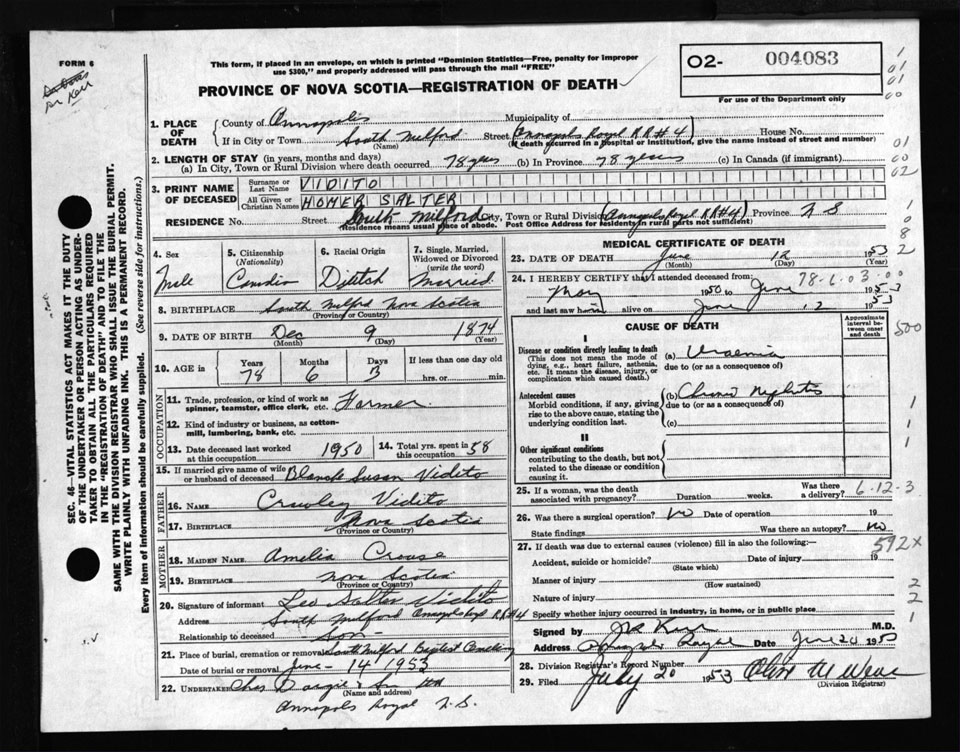 FORM 6
Dr Kerr
This form, if placed in an envelope, on which is printed "Dominion Statistics—Free, penalty for improper
use $300," and properly addressed will pass through the mail "FREE"
PROVINCE OF NOVA SCOTIA—REGISTRATION OF DEATH
O2- 004083
For use of the Department only
SEC. 46—VITAL STATISTICS ACT MAKES IT THE DUTY
OF THE UNDERTAKER OR PERSON ACTING AS UNDER-
TAKER TO OBTAIN ALL THE PARTICULARS REQUIRED
IN THE "REGISTRATION OF DEATH" AND TO FILE THE
SAME WITH THE DIVISION REGISTRAR WHO SHALL ISSUE THE BURIAL PERMIT.
WRITE PLAINLY WITH UNFADING INK. THIS IS A PERMANENT RECORD.
Every item of information should be carefully supplied. (See reverse side for instructions.)
1. PLACE OF DEATH
County of Annapolis Municipality of
If in City or Town South Milford Street (Annapolis Royal RR#4) House No.
(Name) (If death occurred in a hospital or institution, give the name instead of street and number)
2. LENGTH OF STAY (in years, months and days)
(a) In City, Town or Rural Division where death occurred 78 years (b) In Province 78 years (c) In Canada (if immigrant)
3. PRINT NAME OF DECEASED
Surname or Last Name VIDITO
All Given or Christian Names HOMER SALTER
RESIDENCE No. Street South Milford City, Town or Rural Division (Annapolis Royal RR#4) Province N S
(Residence means usual place of abode. Post Office Address for residents in rural parts not sufficient)
4. Sex
Male
5. Citizenship
(Nationality)
6. Racial Origin
7. Single, Married,
Widowed or Divorced
(write the word)
Married
8. BIRTHPLACE South Milford Nova Scotia
(Province or Country)
9. DATE OF BIRTH Dec 9 1874
(Month) (Day) (Year)
10. AGE in Years Months Days If less than one day old
78 6 3 hrs. or min.
OCCUPATION
11. Trade, profession, or kind of work as
spinner, teamster, office clerk, etc. Farmer
12. Kind of industry or business, as cotton-
mill, lumbering, bank, etc.
13. Date deceased last worked
at this occupation 1950
14. Total yrs. spent in
this occupation 58
15. If married give name of wife
or husband of deceased Blanch Susan Vidito
FATHER
16. NAME Crawley Vidito
17. BIRTHPLACE Nova Scotia
(Province or Country)
MOTHER
18. MAIDEN NAME Amelia Crouse
19. BIRTHPLACE Nova Scotia
(Province or Country)
20. Signature of informant Leo Salter Vidito
Address South Milford Annapolis Royal RR#4
Relationship to deceased son
21. Place of burial, cremation or removal South Milford Baptist Cemetery
Date of burial or removal June 14 1953
22. UNDERTAKER & Son Ltd
(Name and address)
Annapolis Royal N.S.
MEDICAL CERTIFICATE OF DEATH
23. DATE OF DEATH June 12 1953
(Month) (Day) (Year)
24. I HEREBY CERTIFY that I attended deceased from:
78-6-03-00
May 1950 to June 1953
and last saw him alive on June 12 1953
CAUSE OF DEATH
Approximate
interval be-
tween onset
and death
I
Disease or condition directly leading to death
(This does not mean the mode of
dying, e.g., heart failure, asthenia,
etc. It means the disease, injury, or
complication which caused death.)
(a) Uraemia
due to (or as a consequence of)
Antecedent causes
Morbid conditions, if any, giving
rise to the above cause, stating the
underlying condition last.
(b) Nephritis
due to (or as a consequence of)
(c)
II
Other significant conditions
contributing to the death, but not
related to the disease or condition
causing it.
25. If a woman, was the death
associated with pregnancy? Duration weeks. Was there a delivery?
6-12-3
26. Was there a surgical operation? No Date of operation 19
State findings Was there an autopsy? No
592x
27. If death was due to external causes (violence) fill in also the following:—
Accident, suicide or homicide? Date of injury 19
(State which)
Manner of injury
(How sustained)
Nature of injury
Specify whether injury occurred in industry, in home, or in public place
Signed by Kerr M.D.
Address Annapolis Royal Date June 20 1953
28. Division Registrar's Record Number
29. Filed July 20 1953
(Division Registrar)